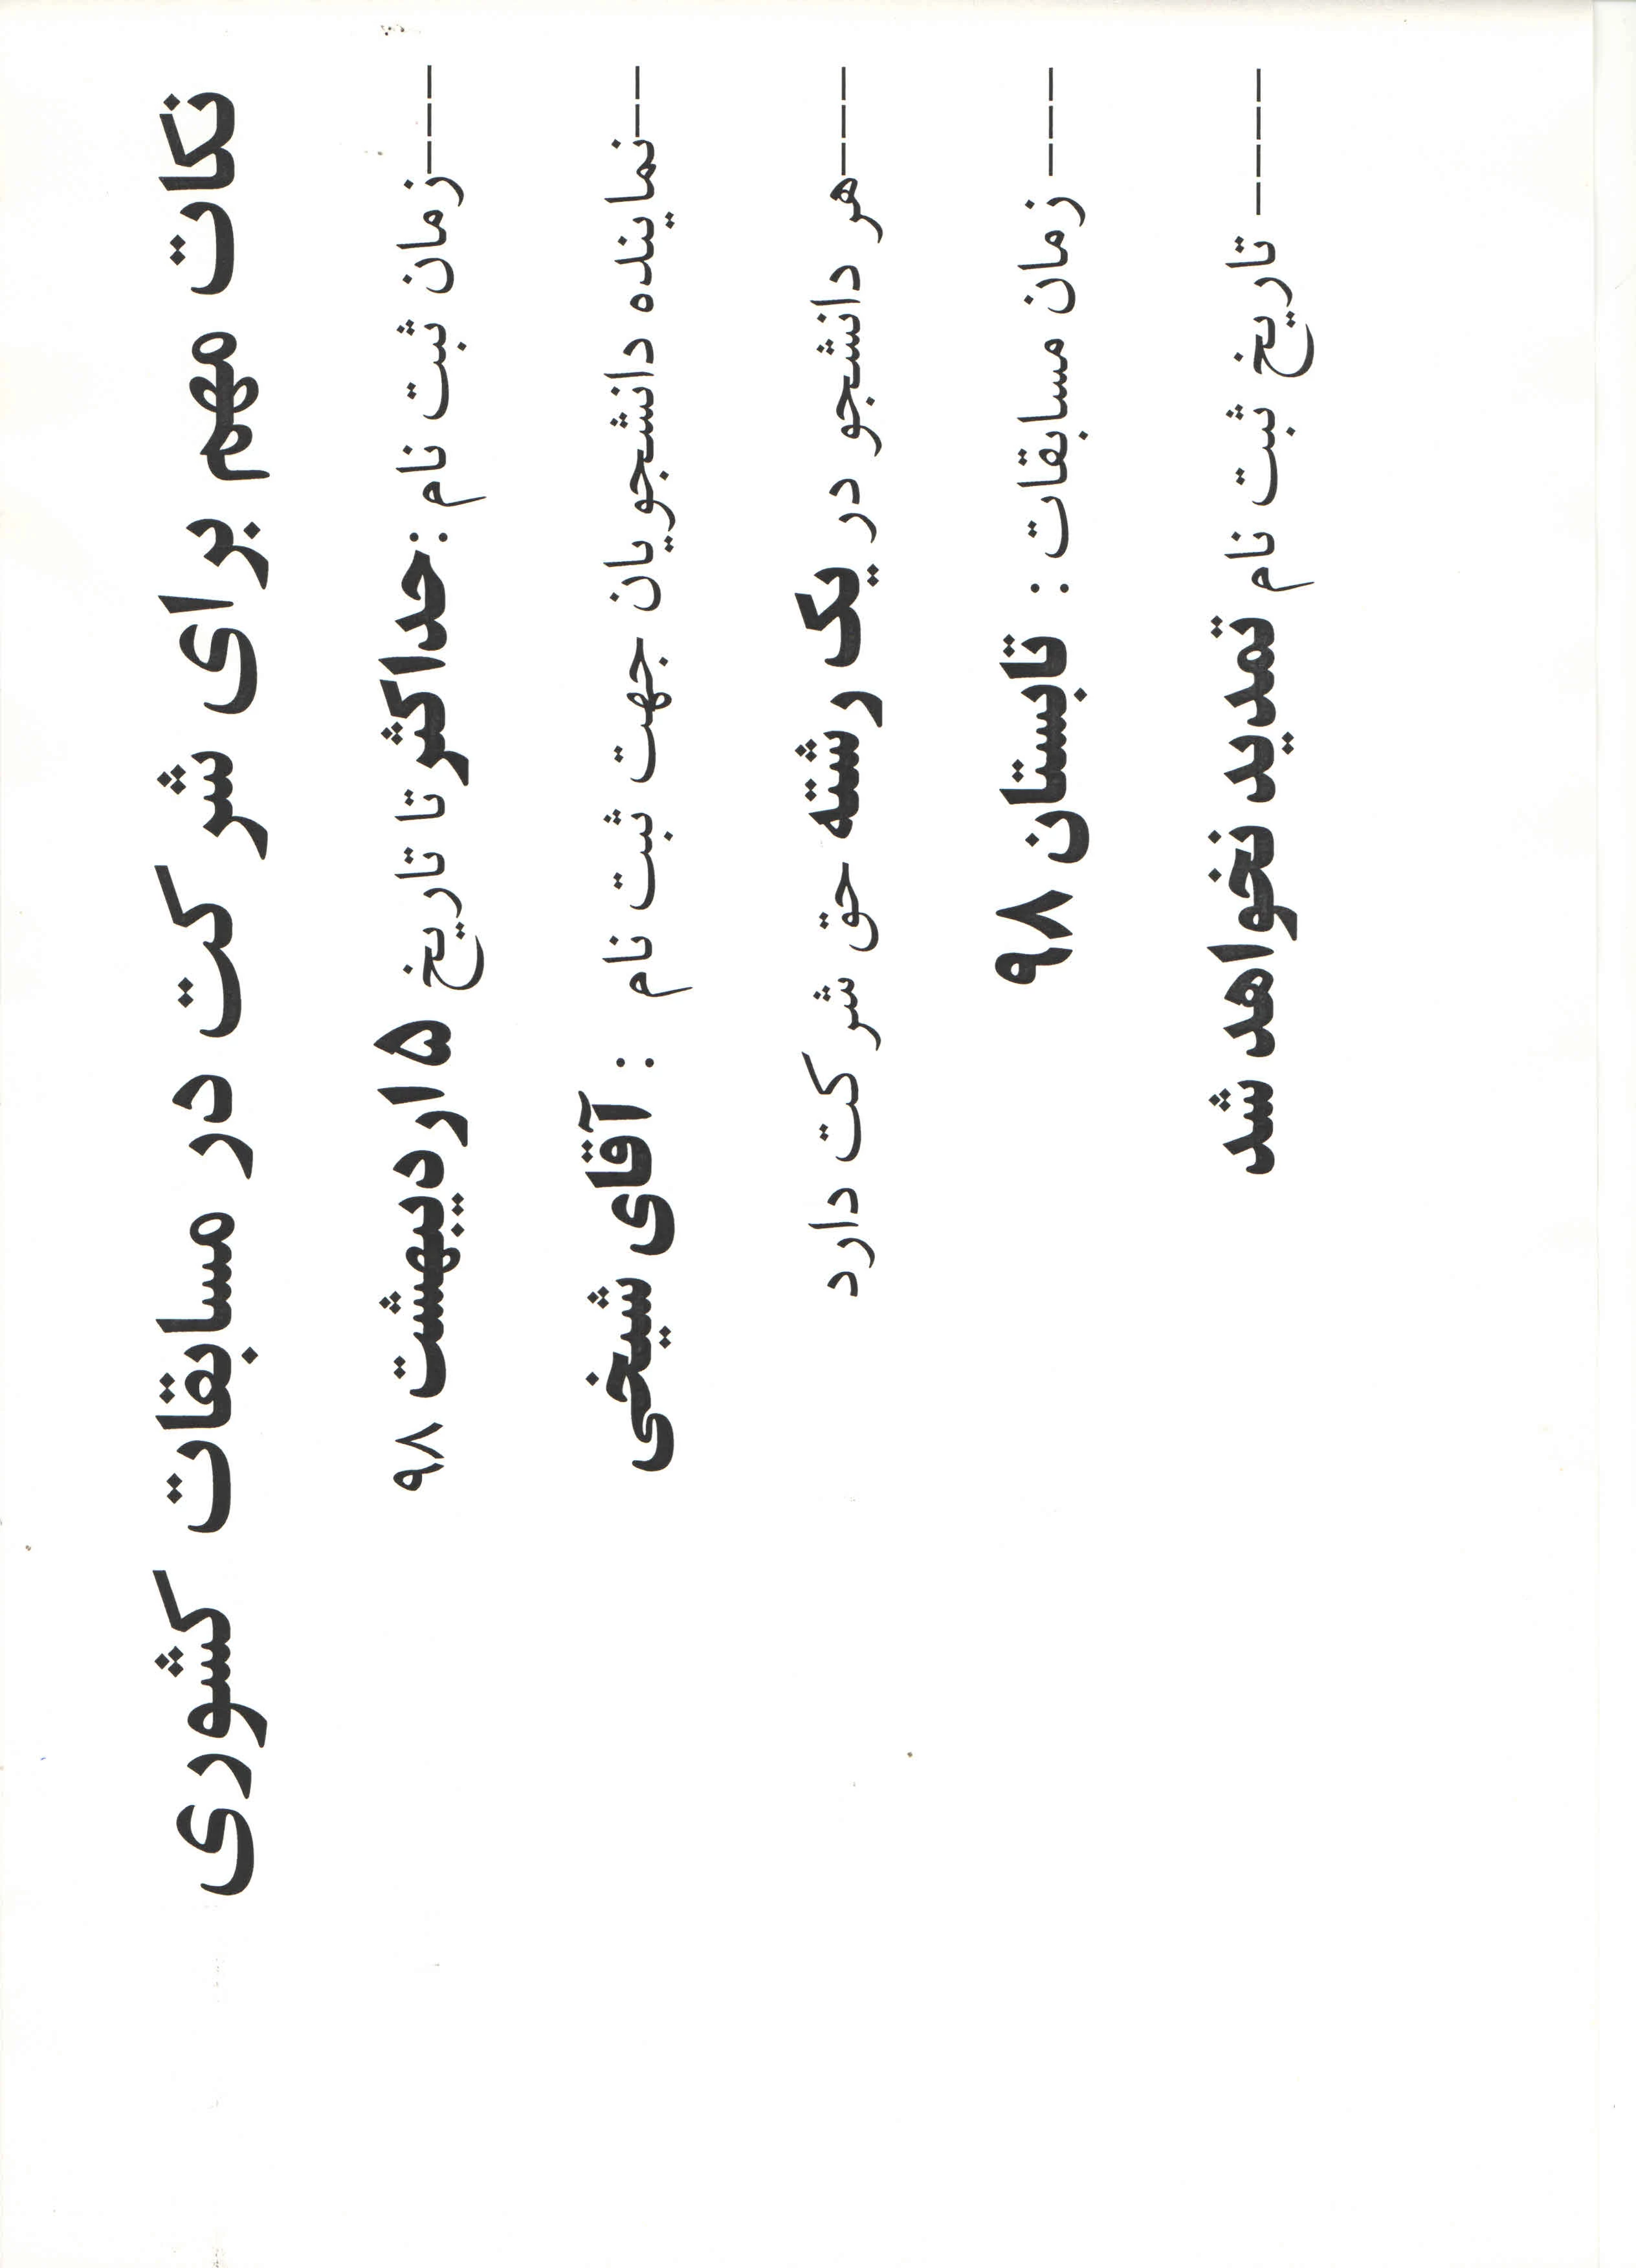 نکات مهم برای شرکت در مسابقات کشوری
---زمان ثبت نام :حداکثر تا تاریخ ۵ اردیبهشت ۹۸
--نماینده دانشجویان جهت ثبت نام : آقای شیخی
---هر دانشجو در یک رشته حق شرکت دارد
--- زمان مسابقات : تابستان ۹۸
---- تاریخ ثبت نام تمدید نخواهد شد